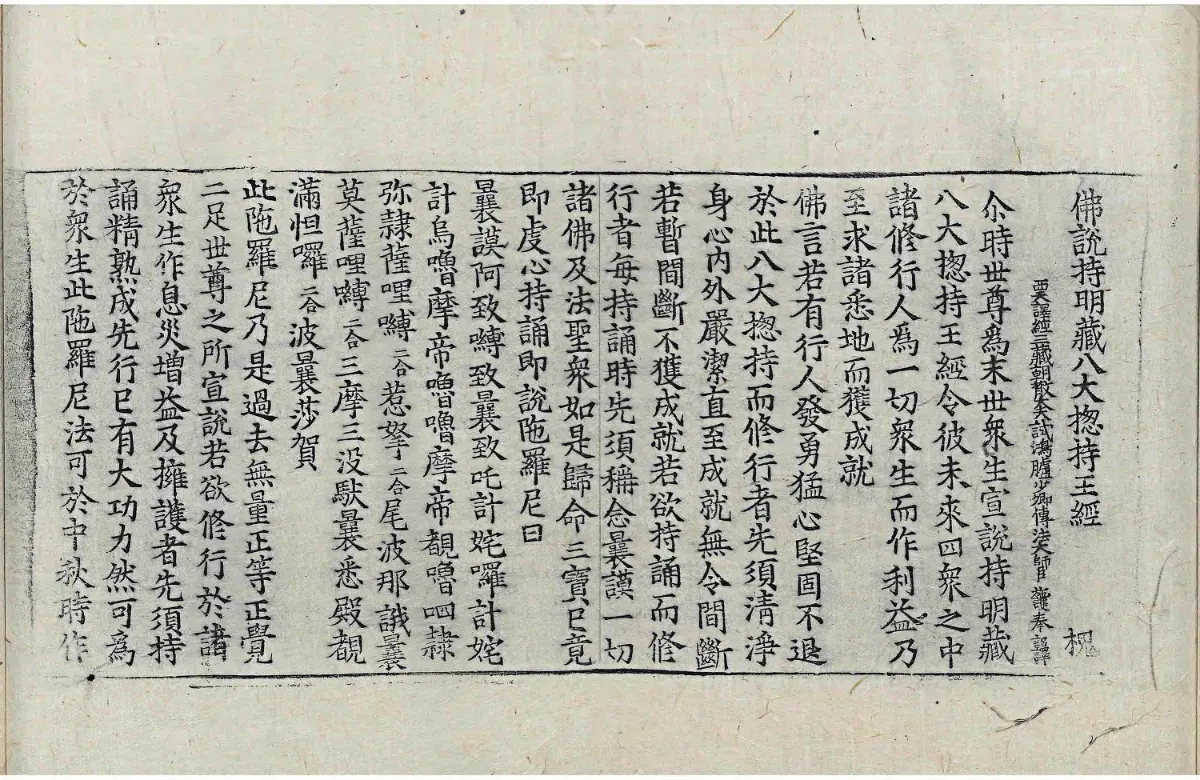 佛說持明藏八大揔持王經 槐
西天譯經三藏朝散大夫試鴻臚少卿傳法大師 施護奉 詔譯
尒時世尊爲末世衆生宣說持明藏
八大揔持王經令彼未來四衆之中
諸修行人爲一切衆生而作利益乃
至求諸悉地而獲成就
佛言若有行人發勇猛心堅固不退
於此八大揔持而修行者先須清淨
身心內外嚴潔直至成就無令間斷
若暫間斷不獲成就若欲持誦而修
行者每持誦時先須稱念曩謨一切
諸佛及法聖衆如是歸命三寶已竟
即虔心持誦即說陁羅尼曰
曩謨阿致嚩致曩致吒計姹囉計姹
計烏嚕摩帝嚕嚕摩帝覩嚕呬隷
弥隷薩哩嚩二合惹拏二合尾波那誐曩
莫薩哩嚩二合三摩三没䭾曩悉殿覩
滿怛囉二合波曩莎賀
此陁羅尼乃是過去無量正等正覺
二足世尊之所宣說若欲修行於諸
衆生作息災增益及擁護者先須持
誦精熟成先行已有大功力然可爲
於衆生此陁羅尼法可於中秋時作